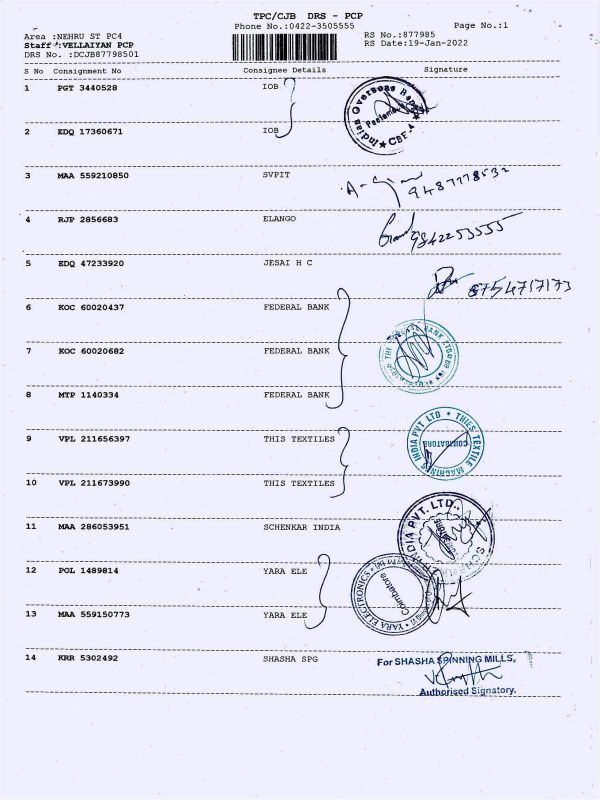 TPC/CJB DRS - PCP
Phone No.:0422-3505555
Page No.:1
Area :NEHRU ST PC4
RS No.:877985
Staff :VELLAIYAN PCP
RS Date:19-Jan-2022
DRS No. :DCJB87798501
S No Consignment No Consignee Details Signature
1 PGT 3440528 IOB
2 EDQ 17360671 IOB
3 MAA 559210850 SVPIT
4 RJP 2856683 ELANGO
9842253555
5 EDQ 47233920 JESAI H C
8754717173
6 KOC 60020437 FEDERAL BANK
7 KOC 60020682 FEDERAL BANK
8 MTP 1140334 FEDERAL BANK
9 VPL 211656397 THIS TEXTILES
THIES TEXTILE MACHINES INDIA PVT LTD
COIMBATORE
10 VPL 211673990 THIS TEXTILES
11 MAA 286053951 SCHENKAR INDIA
INDIA PVT. LTD.
12 POL 1489814 YARA ELE
YARA ELECTRONICS
Coimbatore
13 MAA 559150773 YARA ELE
14 KRR 5302492 SHASHA SPG
For SHASHA SPINNING MILLS,
Authorised Signatory.